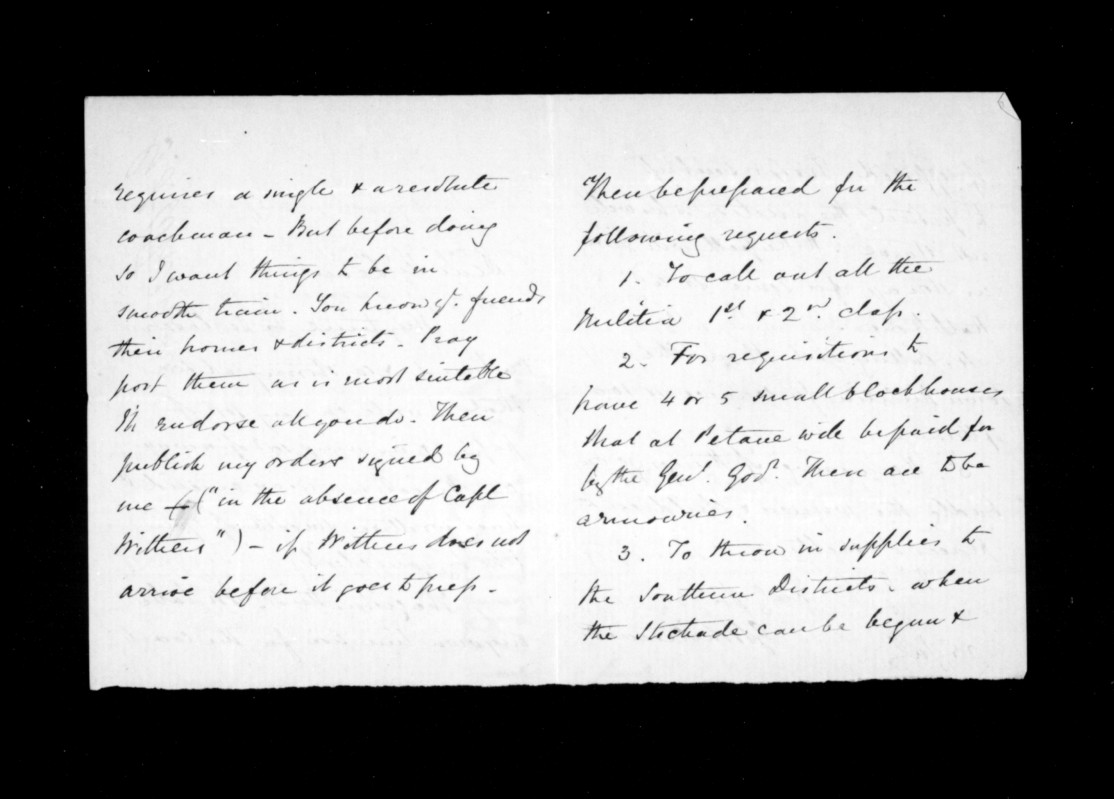 requires a single & a resolute
coachman - But before doing
so I want things to be in
smooth train. You know yr. friends
their homes & districts - Pray
post them as is most suitable
I'll endorse all you do. Then
publish my orders signed by
me ("in the absence of Capt
Withers") - if Withers does not
arrive before it goes to press -
Then be prepared for the
following requests.
1. To call out all the
Militia 1st & 2nd class.
2. For requisitions to
have 4 or 5 small blockhouses
that at Petane will be paid for
by the Genl. Govt. Then are to be
armouries.
3. To throw in supplies to
the Southern Districts - when
the Stockade can be begun &